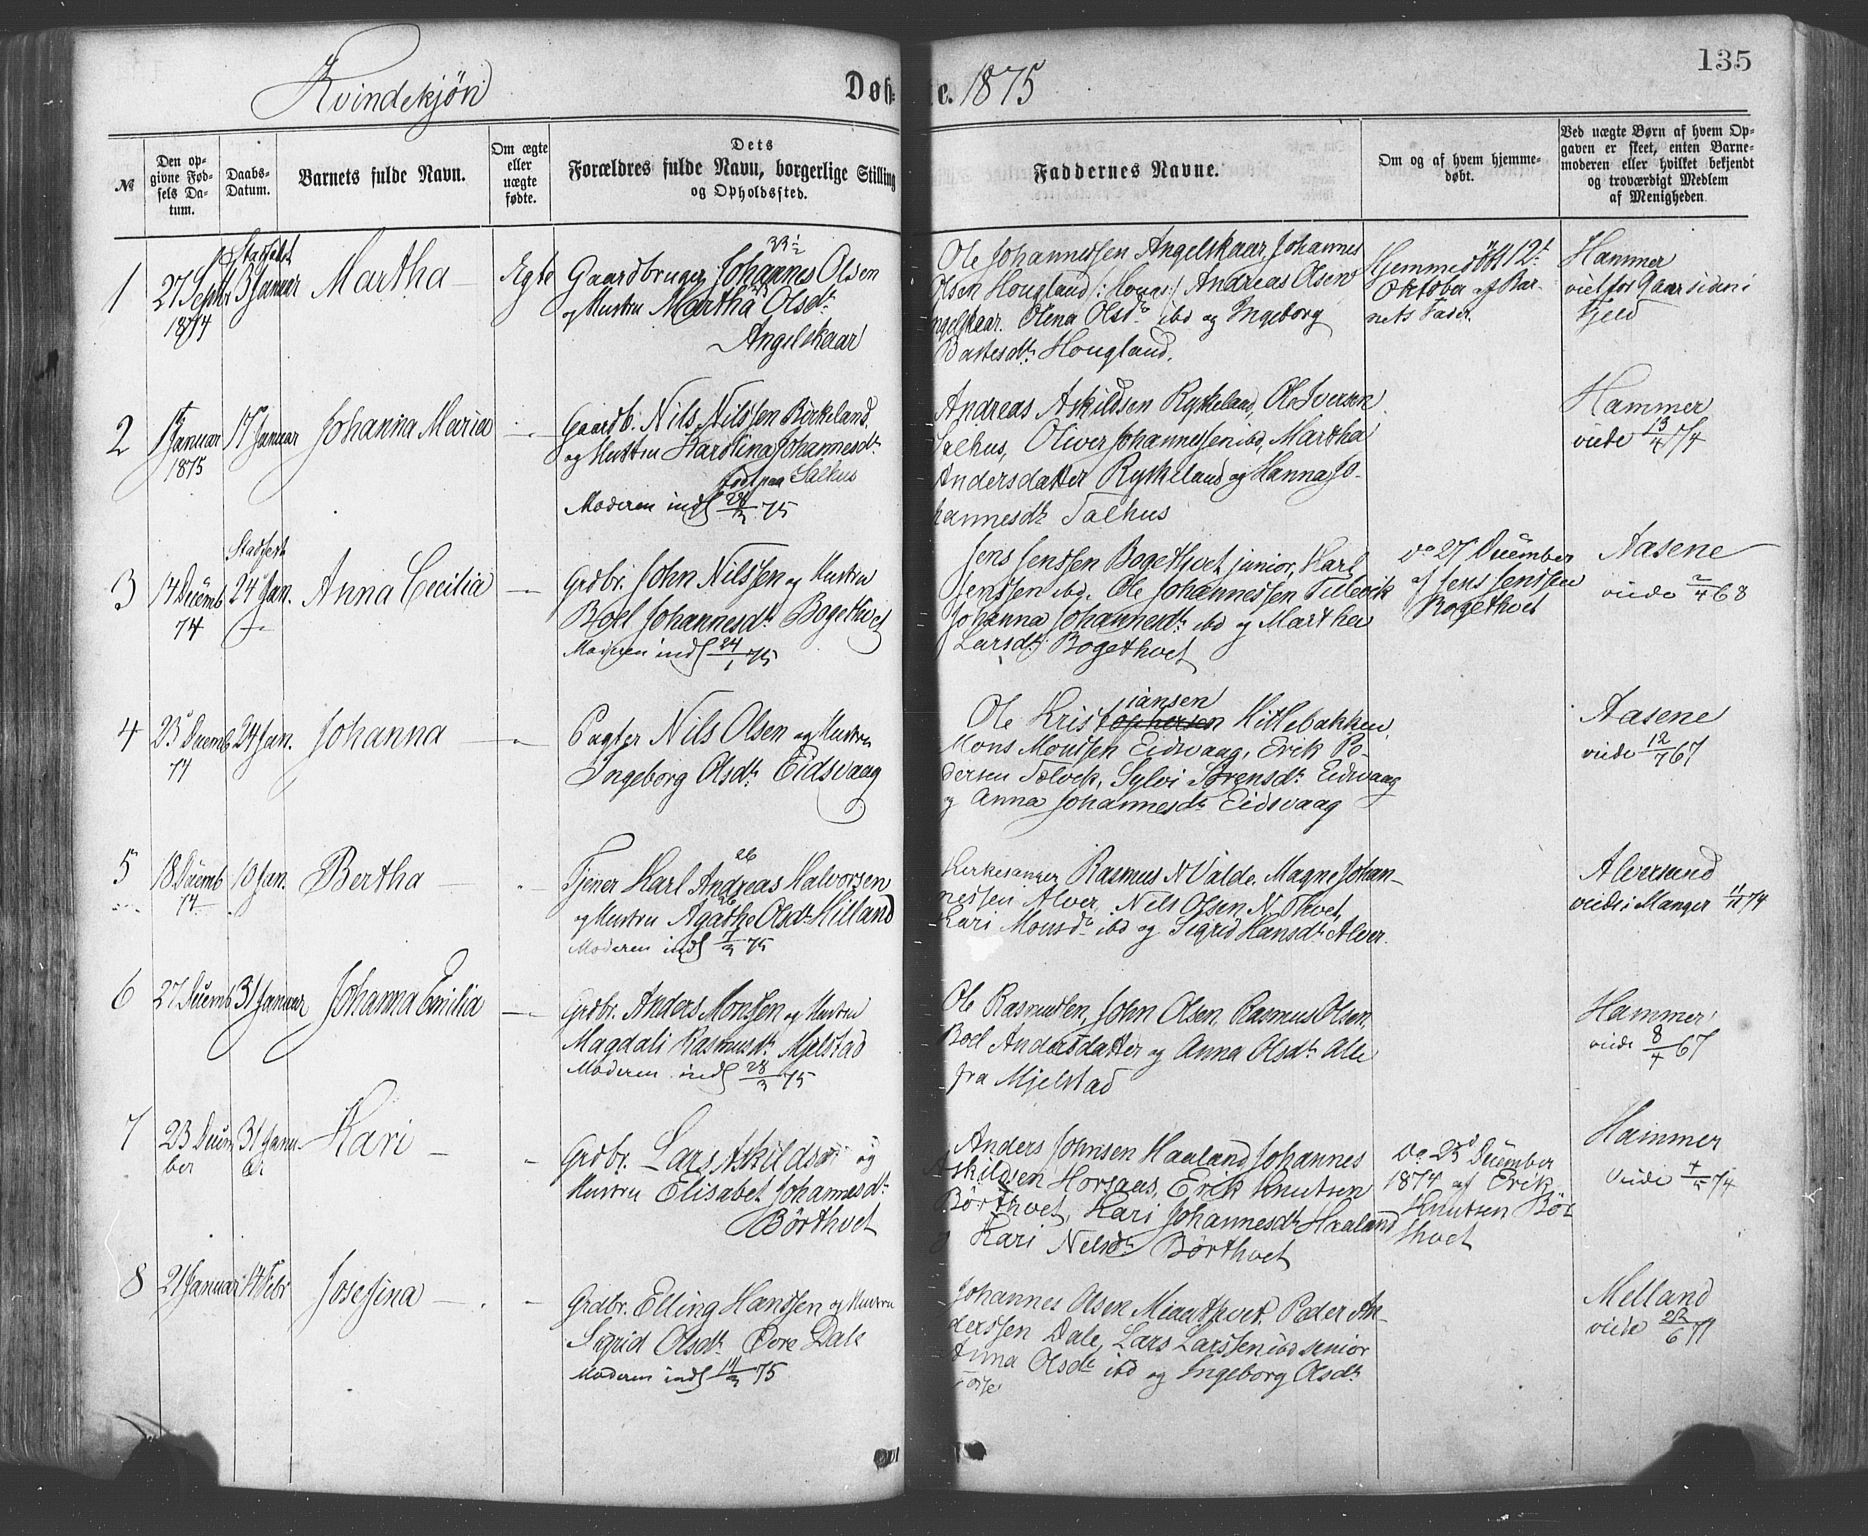 135
Kvindekjøn
Døbte. 1875
№
Den opgivne Fødsels Datum.
Daabs-Datum.
Barnets fulde Navn.
Om ægte eller uægte fødte.
Dets Forældres fulde Navn, borgerlige Stilling og Opholdssted.
Faddernes Navne.
Om og af hvem hjemmedøbt.
Ved uægte Børn af hvem Opgaven er skeet, enten Barnemoderen eller hvilket bekjendt og troværdigt Medlem af Menigheden
1
27 Septbr
1874
Stadfæstet
3 Januar
Martha
Ægte
Gaardbruger Johannes Olsen
og Hustru Martha Olsdt.
Angelskaar
Ole Johannessen Angelskaar, Johannes
Olsen Hougland, Andreas Olsen
Angelskaar, Olena Olsdt ibd og Ingeborg
Hougland.
Hjemmedøbt 12te
Oktober af Bar-
nets Fader.
Hammer
viet for 9 aar siden i
Fjeld
2
1 Januar
1875
17 Januar
Johanna Maria
Gaardb. Nils Nilssen Birkeland
og Hustru Karolina Johannesdt.
Moderen indl 28/3 75
Andreas Askildsen Rykkeland, Ole Iversen
Oliver Johannessen ibd, Martha
Andersdatter Rykkeland og Hanna Jo-
hannesdt
Hammer
viede 13/4 74
3
14 Decemb
74
Stadfest
24 Jan.
Anna Cecilia
Grdbr. John Nilssen og Hustru
Boel Johannesdt. Bogethvet
Moderen indl 24/1 75
Jens Jenssen Bogethvet junior, Karl
Jenssen ibd, Ole Johannessen
Johanna Johannesdt. ibd og Martha
Larsdt. Bogethvet
do 27 December
af Jens Jenssen
Bogethvet
Aasene
viede 2/4 68
4
23 Decemb
74
24 Jan.
Johanna
Pagter Nils Olsen og Hustru
Ingeborg Olsdt. Eidsvaag
iansen
Ole Kristophersen Kittebakken,
Mons Monssen Eidsvaag, Erik Pe-
dersen Tælvek, Sylvi Sørensdt. Eidsvaag
og Anna Johannesdt. Eidsvaag
Aasene
viede 12/7 67
5
18 Decemb
74
10 Jan.
Bertha
26
Tjener Karl Andreas Halvorsen
26
og Hustru Agathe Olsdt. Hilland
Moderen indl 7/3 75
Kirkesanger Rasmus N Valde, Magne Johan-
nessen Alver, Nels Olsen N. Thvet,
Kari Monsdt. ibd og Sigrid Hansdt. Alver.
Alversund
viede i Manger 11/11 74
6
27 Decemb
31 Januar
Johanna Emilia
Grdbr. Anders Monssen og Hustru
Magdali Rasmusdt. Mjelstad
Moderen indl 28/3 75
Ole Rasmussen, John Olsen, Rasmus Olsen,
Boel Andersdatter og Anna Olsdt. Alle
fra Mjelstad
Hammer
viede 8/4 67
7
23 Decem
ber
31 Janu
ar
Kari
Grdbr. Lars Askildsen og
Hustru Elisabet Johannesdt.
Börthvet
Anders Johnsen Haaland, Johannes
Askildsen Horsaas, Erik Knutsen
Börthvet, Kari Johannesdt. Haaland
og Kari Nelsdt. Börthvet
do 23 December
1874 af Erik
Knutsen Bör
thvet
Hammer
Viede 74
8
21 Januar
14 Febr
Josefina
Grdbr. Elling Hanssen og Hustru
Sigrid Olsdt. Øvre Dale
Moderen indl 14/3 75
Johannes Olsen Peder An-
derssen Dale, Lars Larssen ibd senior
Anna Olsdt. ibd og Ingeborg Olsdt.
Melland
viede